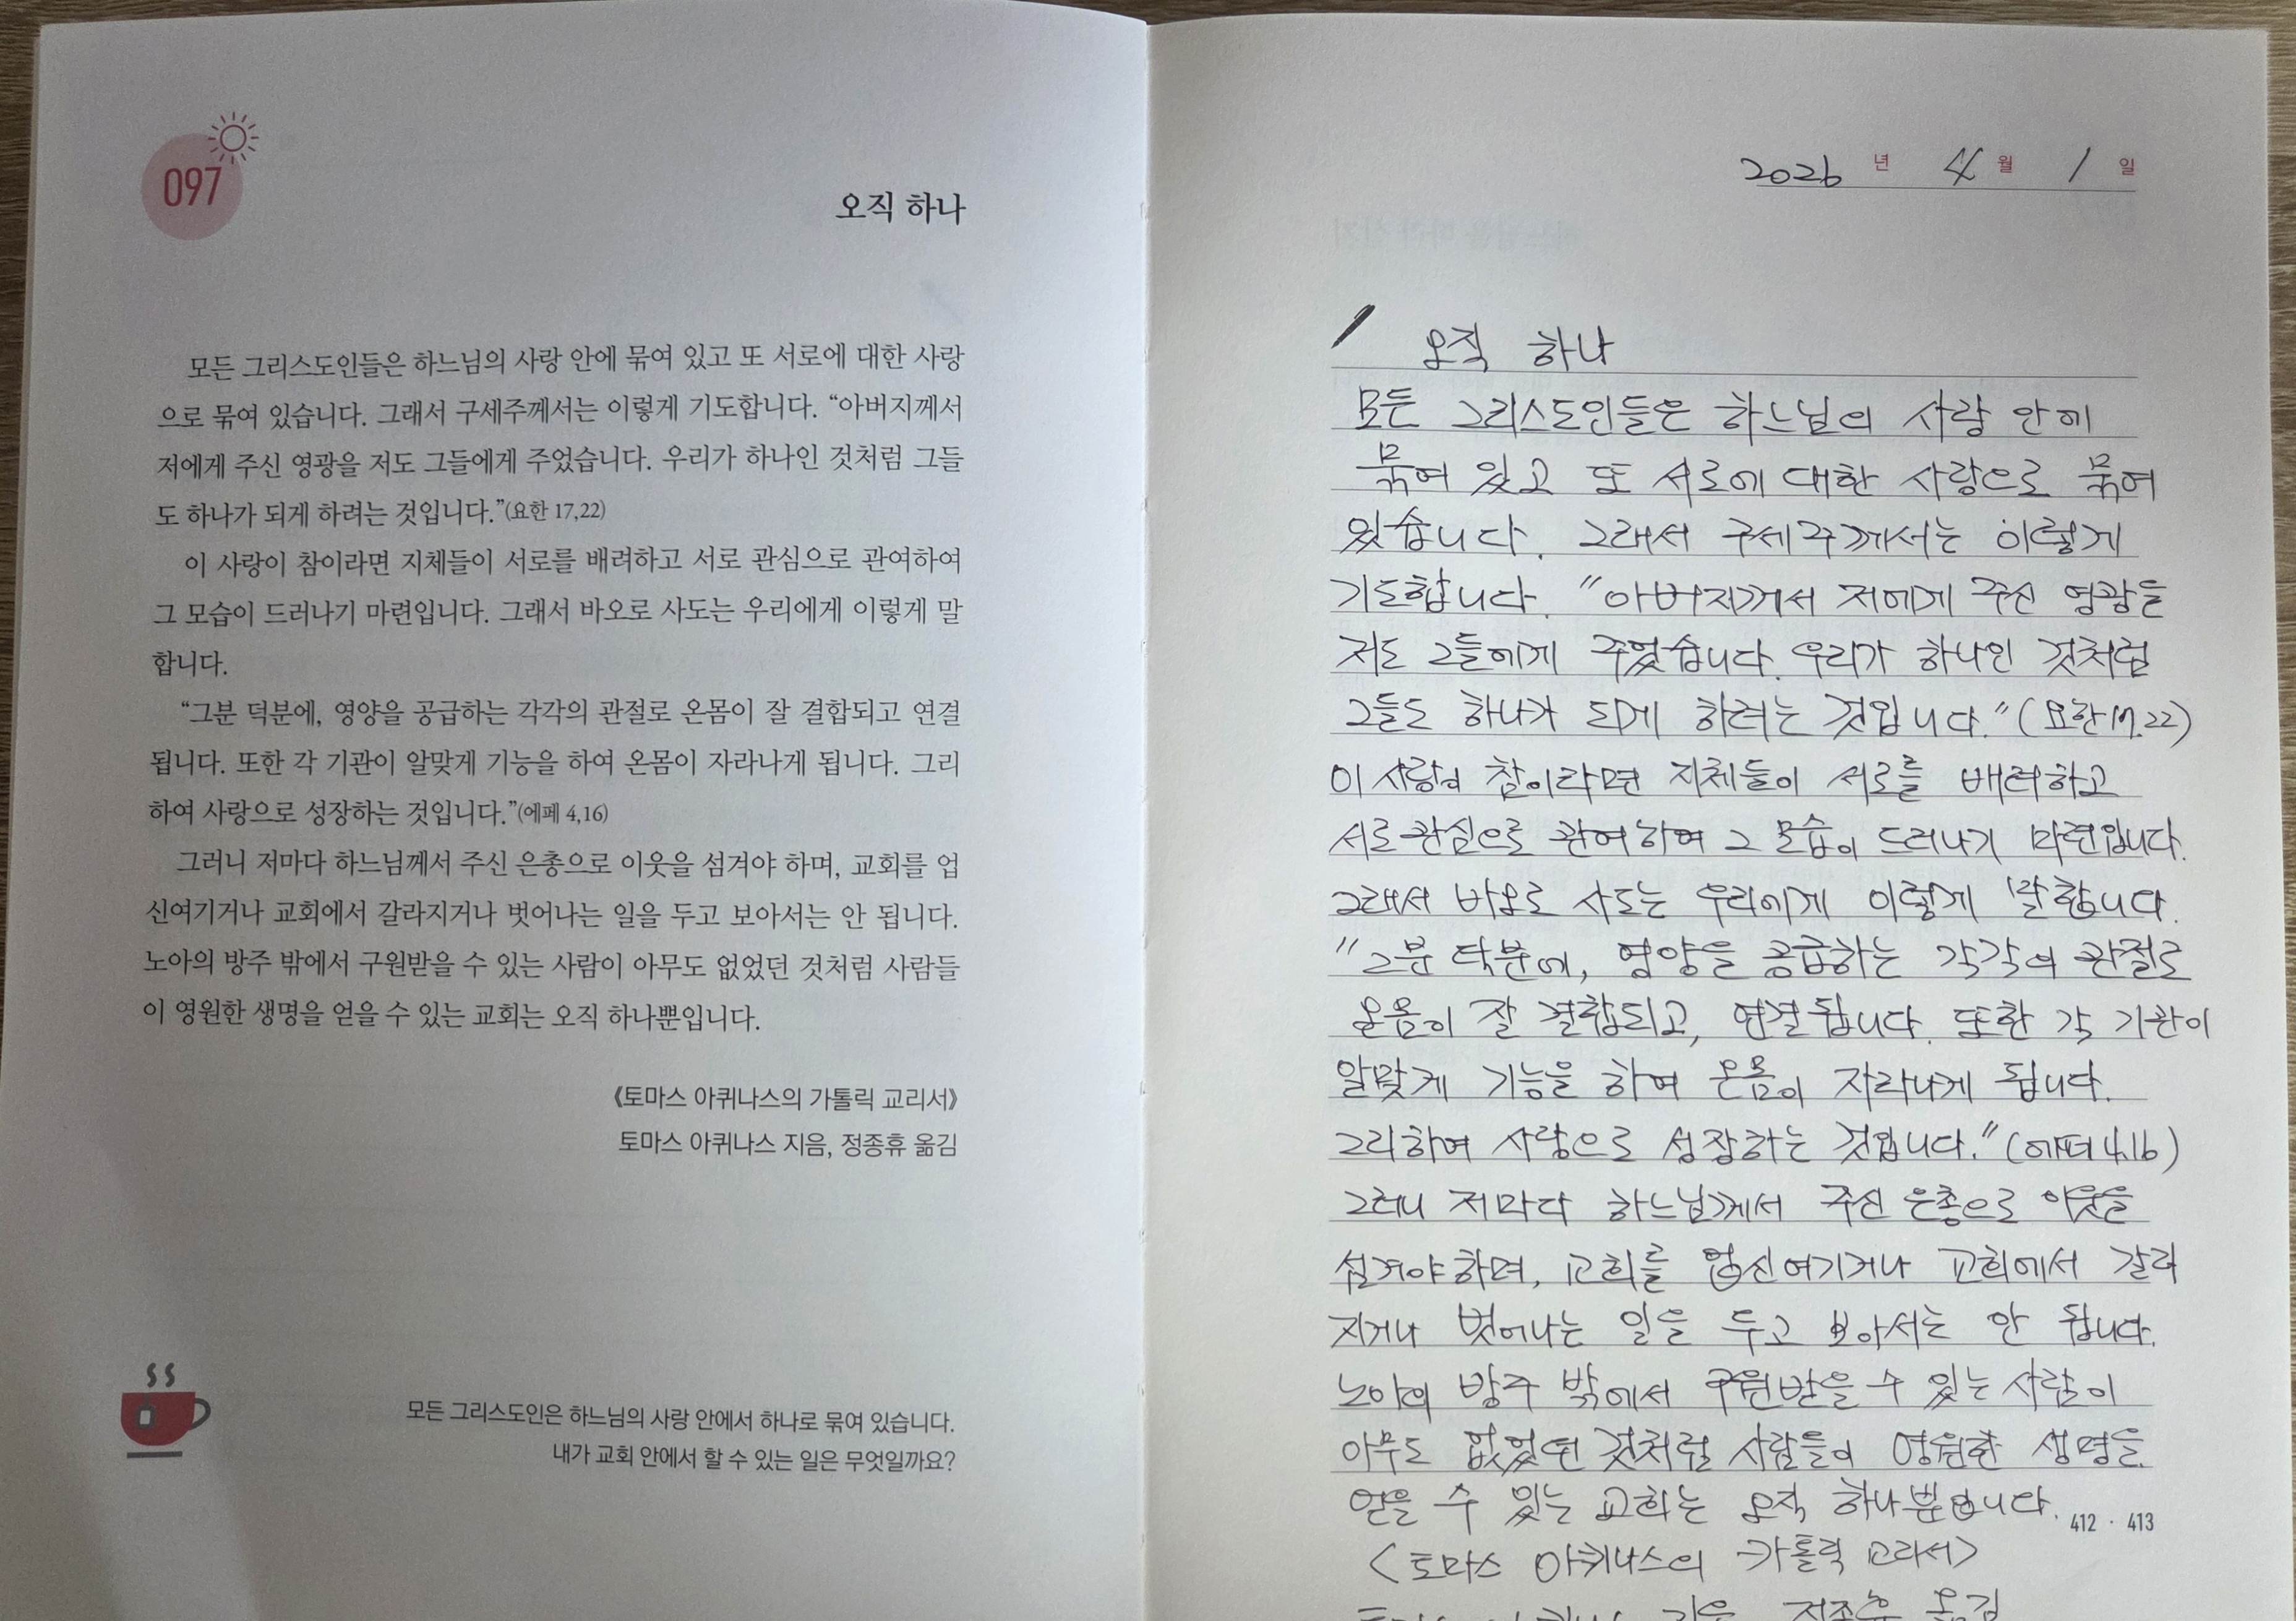 097
오직 하나
모든 그리스도인들은 하느님의 사랑 안에 묶여 있고 또 서로에 대한 사랑
으로 묶여 있습니다. 그래서 구세주께서는 이렇게 기도합니다. “아버지께서
저에게 주신 영광을 저도 그들에게 주었습니다. 우리가 하나인 것처럼 그들
도 하나가 되게 하려는 것입니다.”(요한 17,22)
이 사랑이 참이라면 지체들이 서로를 배려하고 서로 관심으로 관여하여
그 모습이 드러나기 마련입니다. 그래서 바오로 사도는 우리에게 이렇게 말
합니다.
“그분 덕분에, 영양을 공급하는 각각의 관절로 온몸이 잘 결합되고 연결
됩니다. 또한 각 기관이 알맞게 기능을 하여 온몸이 자라나게 됩니다. 그리
하여 사랑으로 성장하는 것입니다.”(에페 4,16)
그러니 저마다 하느님께서 주신 은총으로 이웃을 섬겨야 하며, 교회를 업
신여기거나 교회에서 갈라지거나 벗어나는 일을 두고 보아서는 안 됩니다.
노아의 방주 밖에서 구원받을 수 있는 사람이 아무도 없었던 것처럼 사람들
이 영원한 생명을 얻을 수 있는 교회는 오직 하나뿐입니다.
《토마스 아퀴나스의 가톨릭 교리서》
토마스 아퀴나스 지음, 정종휴 옮김
모든 그리스도인은 하느님의 사랑 안에서 하나로 묶여 있습니다.
내가 교회 안에서 할 수 있는 일은 무엇일까요?
2026 년 4 월 1 일
오직 하나
모든 그리스도인들은 하느님의 사랑 안에
묶여 있고 또 서로에 대한 사랑으로 묶여
있습니다. 그래서 구세주께서는 이렇게
기도합니다. "아버지께서 저에게 주신 영광을
저도 그들에게 주었습니다. 우리가 하나인 것처럼
그들도 하나가 되게 하려는 것입니다." (요한 17.22)
이 사랑이 참이라면 지체들이 서로를 배려하고
서로 관심으로 관여하여 그 모습이 드러나기 마련입니다.
그래서 바오로 사도는 우리에게 이렇게 말합니다.
"그분 덕분에, 영양을 공급하는 각각의 관절로
온몸이 잘 결합되고, 연결됩니다. 또한 각 기관이
알맞게 기능을 하여 온몸이 자라나게 됩니다.
그리하여 사랑으로 성장하는 것입니다." (에페 4.16)
그러니 저마다 하느님께서 주신 은총으로 이웃을
섬겨야 하며, 교회를 업신여기거나 교회에서 갈라
지거나 벗어나는 일을 두고 보아서는 안 됩니다.
노아의 방주 밖에서 구원받을 수 있는 사람이
아무도 없었던 것처럼 사람들이 영원한 생명을
얻을 수 있는 교회는 오직 하나뿐입니다.
412 · 413
<토마스 아퀴나스의 가톨릭 교리서>
지음, 정종휴 옮김